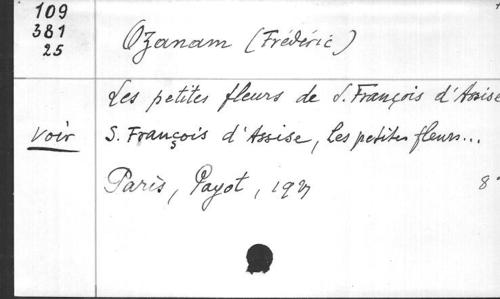 109
381
25
Ozanam (Frédéric)
Les petites fleurs de S. François d'Assise
voir S. François d'Assise, Les petites fleurs...
Paris, Payot, 1927 8°